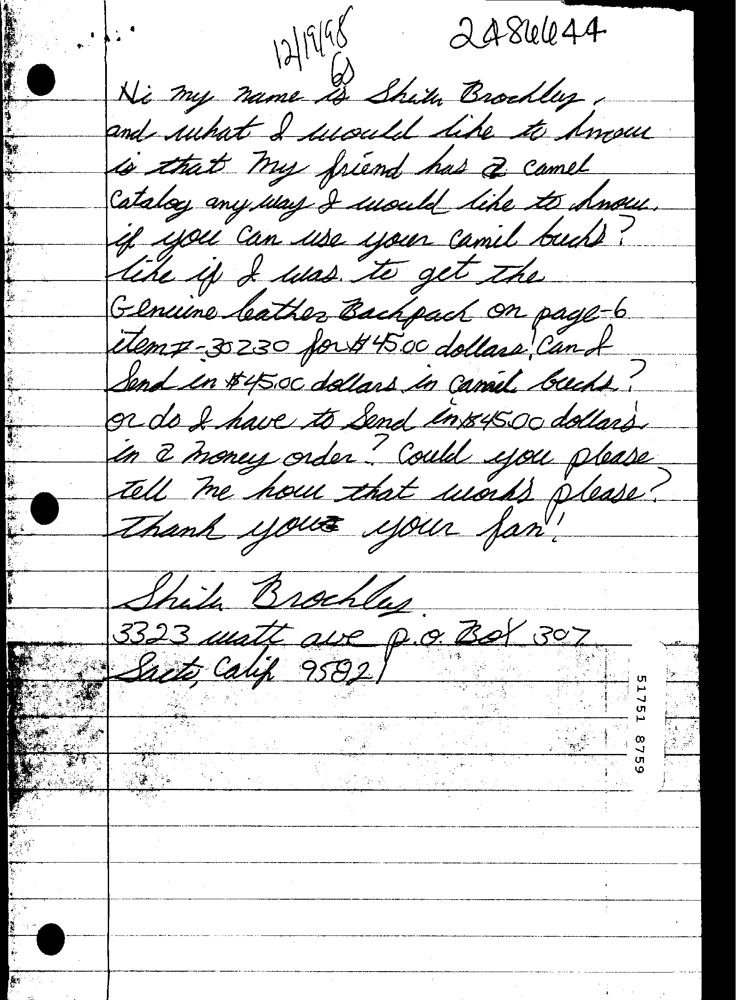 12/19/98 2486644
GS
Hi my name is Sheila Brochley,
and what I would like to know
is that my friend has a camel
Catalog any way I would like to know.
if you can use your camil bucks?
like if I was. to get the
Genuine leather Backpack on page-6
item#-30230 for $45.00 dollars! Can I
Send in $45.00 dollars in camil bucks?
or do I have to Send in $45.00 dollars
in a money order? Could you please
tell me how that works please?
Thank you your fan!
Sheila Brochley
3323 watt ave p.o. Box 307
Sacto, Calif 95821
51751 8759